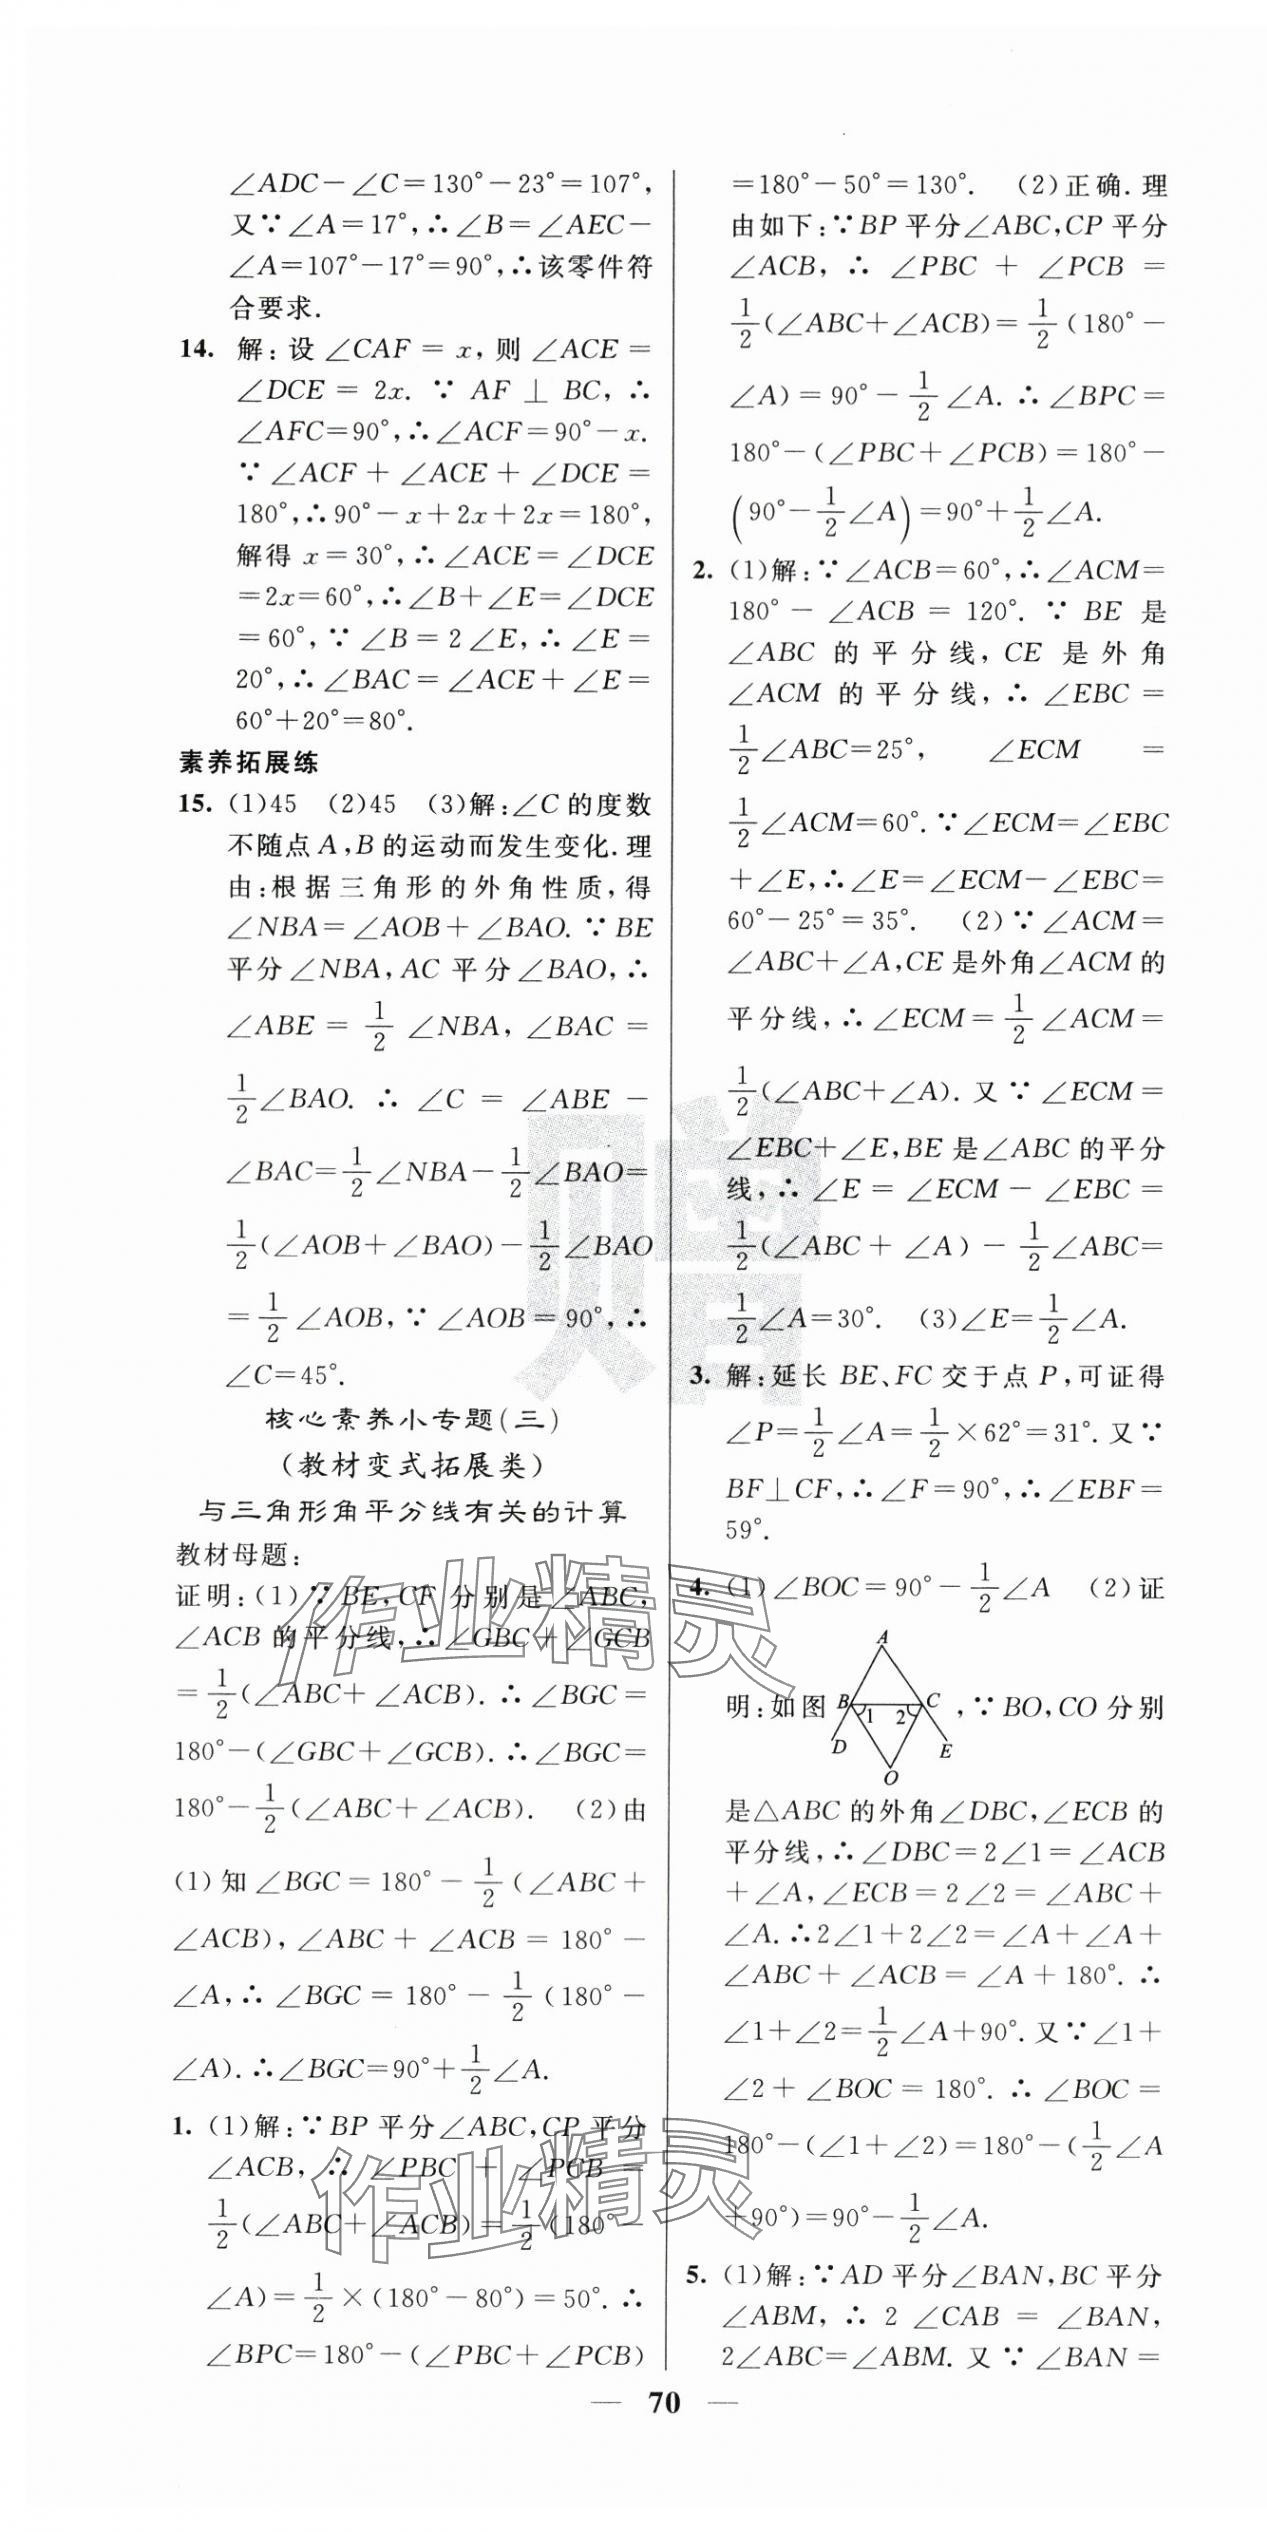 ∠ADC－∠C＝130°－23°＝107°,
又∵∠A＝17°,∴∠B＝∠AEC－
∠A＝107°－17°＝90°,∴该零件符
合要求.
14. 解:设∠CAF＝x,则∠ACE＝
∠DCE＝2x. ∵ AF ⊥ BC, ∴
∠AFC＝90°,∴∠ACF＝90°－x.
∵∠ACF＋∠ACE＋∠DCE＝
180°,∴90°－x＋2x＋2x＝180°,
解得 x＝30°,∴∠ACE＝∠DCE
＝2x＝60°,∴∠B＋∠E＝∠DCE
＝60°,∵∠B＝2∠E,∴∠E＝
20°,∴∠BAC＝∠ACE＋∠E＝
60°＋20°＝80°.
素养拓展练
15. (1)45 (2)45 (3)解:∠C 的度数
不随点 A,B 的运动而发生变化.理
由:根据三角形的外角性质,得
∠NBA＝∠AOB＋∠BAO. ∵BE
平分∠NBA,AC 平分∠BAO,∴
∠ABE＝1/2∠NBA,∠BAC＝
1/2∠BAO. ∴ ∠C ＝ ∠ABE －
∠BAC＝1/2∠NBA－1/2∠BAO＝
1/2(∠AOB＋∠BAO)－1/2∠BAO
＝1/2∠AOB,∵∠AOB＝90°,∴
∠C＝45°.
核心素养小专题(三)
(教材变式拓展类)
与三角形角平分线有关的计算
教材母题:
证明:(1)∵BE,CF 分别是∠ABC,
∠ACB 的平分线,∴∠GBC＋∠GCB
＝1/2(∠ABC＋∠ACB). ∴∠BGC＝
180°－(∠GBC＋∠GCB). ∴∠BGC＝
180°－1/2(∠ABC＋∠ACB). (2)由
(1)知∠BGC＝180°－1/2(∠ABC＋
∠ACB),∠ABC＋∠ACB＝180°－
∠A,∴∠BGC＝180°－1/2(180°－
∠A). ∴∠BGC＝90°＋1/2∠A.
1. (1)解:∵BP 平分∠ABC,CP 平分
∠ACB, ∴ ∠PBC ＋ ∠PCB ＝
1/2(∠ABC＋∠ACB)＝1/2(180°－
∠A)＝1/2×(180°－80°)＝50°. ∴
∠BPC＝180°－(∠PBC＋∠PCB)
＝180°－50°＝130°. (2)正确.理
由如下:∵BP 平分∠ABC,CP 平分
∠ACB, ∴ ∠PBC ＋ ∠PCB ＝
1/2(∠ABC＋∠ACB)＝1/2(180°－
∠A)＝90°－1/2∠A. ∴∠BPC＝
180°－(∠PBC＋∠PCB)＝180°－
(90°－1/2∠A)＝90°＋1/2∠A.
2. (1)解:∵∠ACB＝60°,∴∠ACM＝
180°－∠ACB＝120°. ∵ BE 是
∠ABC 的平分线,CE 是外角
∠ACM 的平分线,∴∠EBC＝
1/2∠ABC＝25°, ∠ECM ＝
1/2∠ACM＝60°. ∵∠ECM＝∠EBC
＋∠E,∴∠E＝∠ECM－∠EBC＝
60°－25°＝35°. (2)∵∠ACM＝
∠ABC＋∠A,CE 是外角∠ACM 的
平分线,∴∠ECM＝1/2∠ACM＝
1/2(∠ABC＋∠A). 又∵∠ECM＝
∠EBC＋∠E,BE 是∠ABC 的平分
线,∴∠E＝∠ECM－∠EBC＝
1/2(∠ABC＋∠A)－1/2∠ABC＝
1/2∠A＝30°. (3)∠E＝1/2∠A.
3. 解:延长 BE、FC 交于点 P,可证得
∠P＝1/2∠A＝1/2×62°＝31°. 又∵
BF⊥CF,∴∠F＝90°,∴∠EBF＝
59°.
4. (1)∠BOC＝90°－1/2∠A (2)证
明:如图
A
B
1
2
C
D
E
O
,∵BO,CO 分别
是△ABC 的外角∠DBC,∠ECB 的
平分线,∴∠DBC＝2∠1＝∠ACB
＋∠A,∠ECB＝2∠2＝∠ABC＋
∠A. ∴2∠1＋2∠2＝∠A＋∠A＋
∠ABC＋∠ACB＝∠A＋180°. ∴
∠1＋∠2＝1/2∠A＋90°. 又∵∠1＋
∠2＋∠BOC＝180°. ∴∠BOC＝
180°－(∠1＋∠2)＝180°－(1/2∠A
＋90°)＝90°－1/2∠A.
5. (1)解:∵AD 平分∠BAN,BC 平分
∠ABM, ∴ 2 ∠CAB ＝ ∠BAN,
2∠ABC＝∠ABM. 又∵∠BAN＝
— 70 —
赠
作业精灵
作业精灵